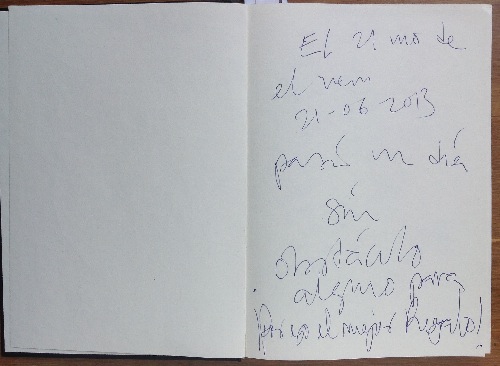 El 21 no de
el
21-06-2013
pasó un día
sin
obstáculo
alguno para
el mejor Regalo!